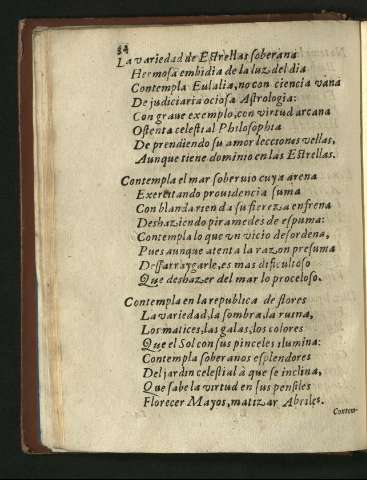 34
La variedad de Estrellas soberana
Hermosa embidia de la luz del dia
Contempla Eulalia, no con ciencia vana
De judiciaria ociosa Astrologia:
Con graue exemplo, con virtud arcana
Ostenta celestial Philosophia
De prendiendo su amor lecciones vellas,
Aunque tiene dominio en las Estrellas.
Contempla el mar soberuio cuya arena
Exercitando prouidencia suma
Con blanda rienda su fiereza enfrena
Deshaziendo piramedes de espuma:
Contempla lo que un vicio desordena,
Pues aunque atenta la razon presuma
Dessarraygarle, es mas dificultoso
Que deshazer del mar lo proceloso.
Contempla en la republica de flores
La variedad, la sombra, la ruina,
Los matices, las galas, los colores
Que el Sol con sus pinceles ilumina:
Contempla soberanos esplendores
Del jardin celestial à que se inclina,
Que sabe la virtud en sus pensiles
Florecer Mayos, matizar Abriles.
Contem-